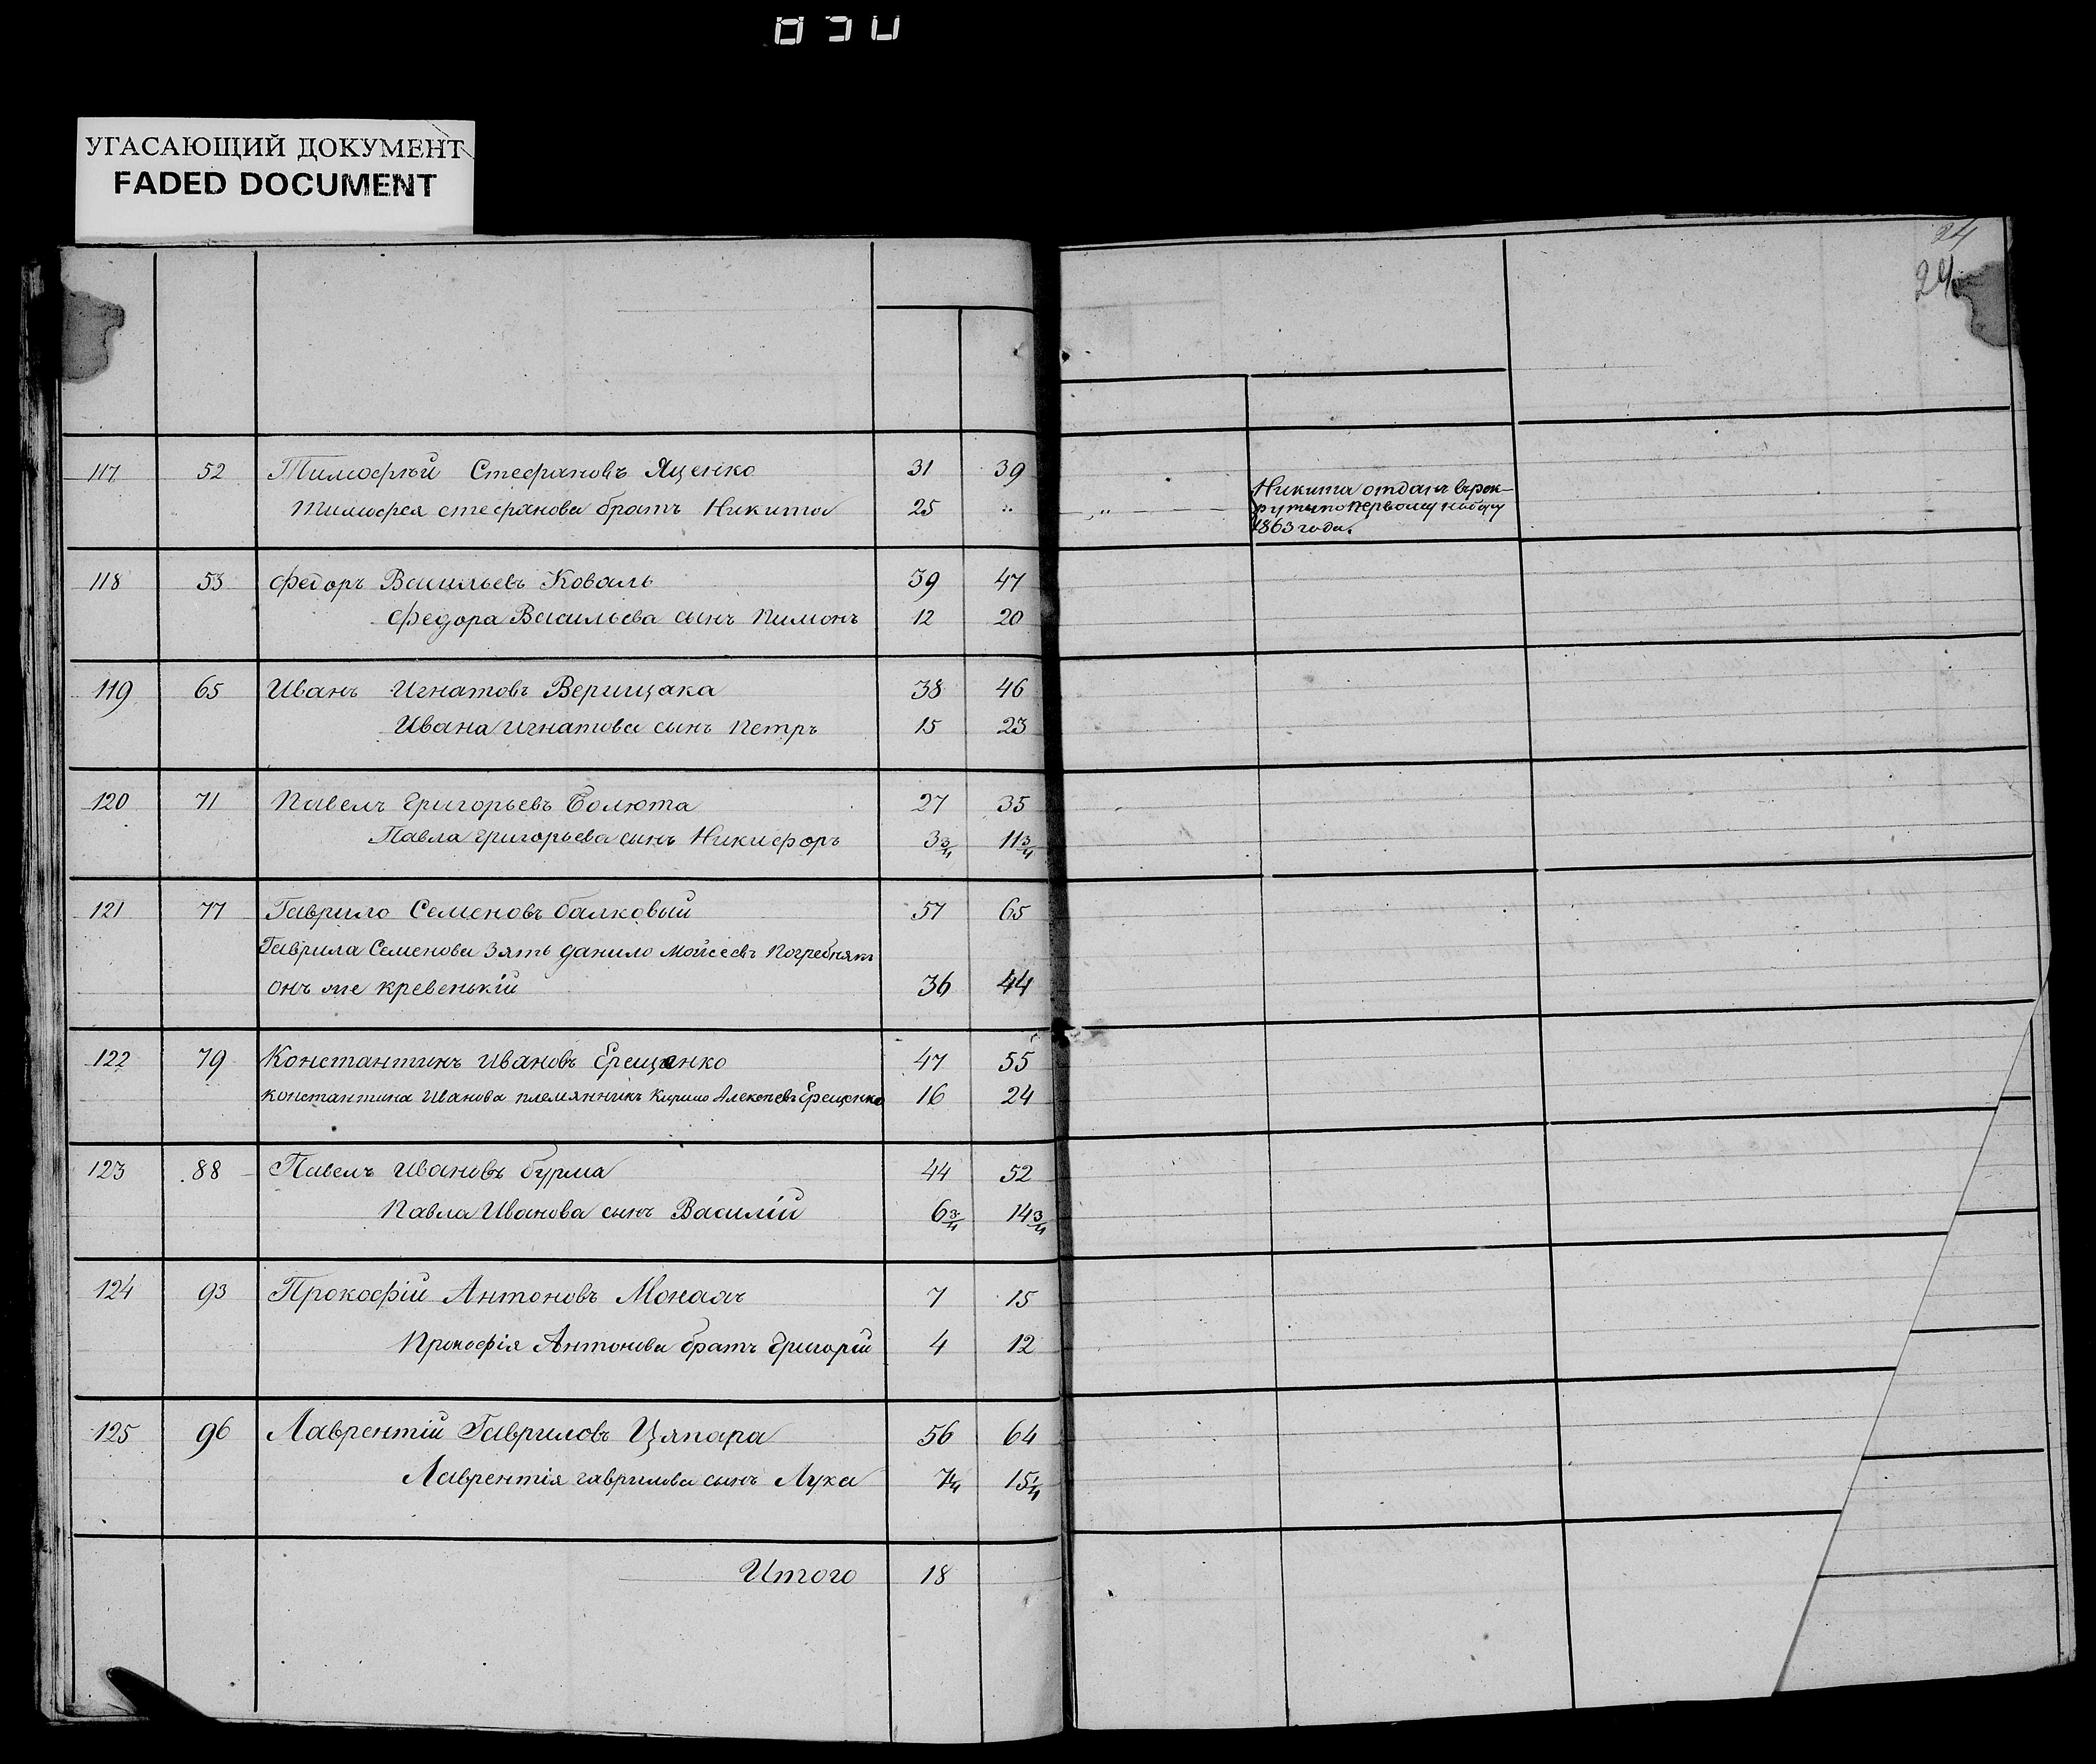 850
УГАСАЮЩИЙ ДОКУМЕНТ
FADED DOCUMENT
24
24
117 52 Тимофѣй Стефановъ Яценко 31 39
Тимофея стефанова братъ Никита 25 „ „
Никита отданъ в рек-
руты по первому набору
1863 года.
118 53 Федоръ Васильевъ Коваль 39 47
Федора Васильева сынъ Пимонъ 12 20
119 65 Иванъ Игнатовъ Верищака 38 46
Ивана Игнатова сынъ Петръ 15 23
120 71 Павелъ Григорьевъ Болюта 27 35
Павла Григорьева сынъ Никифоръ 3 3/4 11 3/4
121 77 Гаврило Семеновъ балковый 57 65
Гаврила Семенова Зять Данило Мойсеевъ Погребнякъ
онъ же кревенькій 36 44
122 79 Константинъ Ивановъ Ерещенко 47 55
Константина Иванова племянникъ Кирило Алексѣевъ Ерещенко 16 24
123 88 Павелъ Ивановъ бурма 44 52
Павла Иванова сынъ Василій 6 3/4 14 3/4
124 93 Прокофій Антоновъ 7 15
Прокофія Антонова братъ Григорій 4 12
125 96 Лаврентій Гавриловъ Цяпара 56 64
Лаврентія гаврилова сынъ Лука 7 1/4 15 1/4
Итого 18